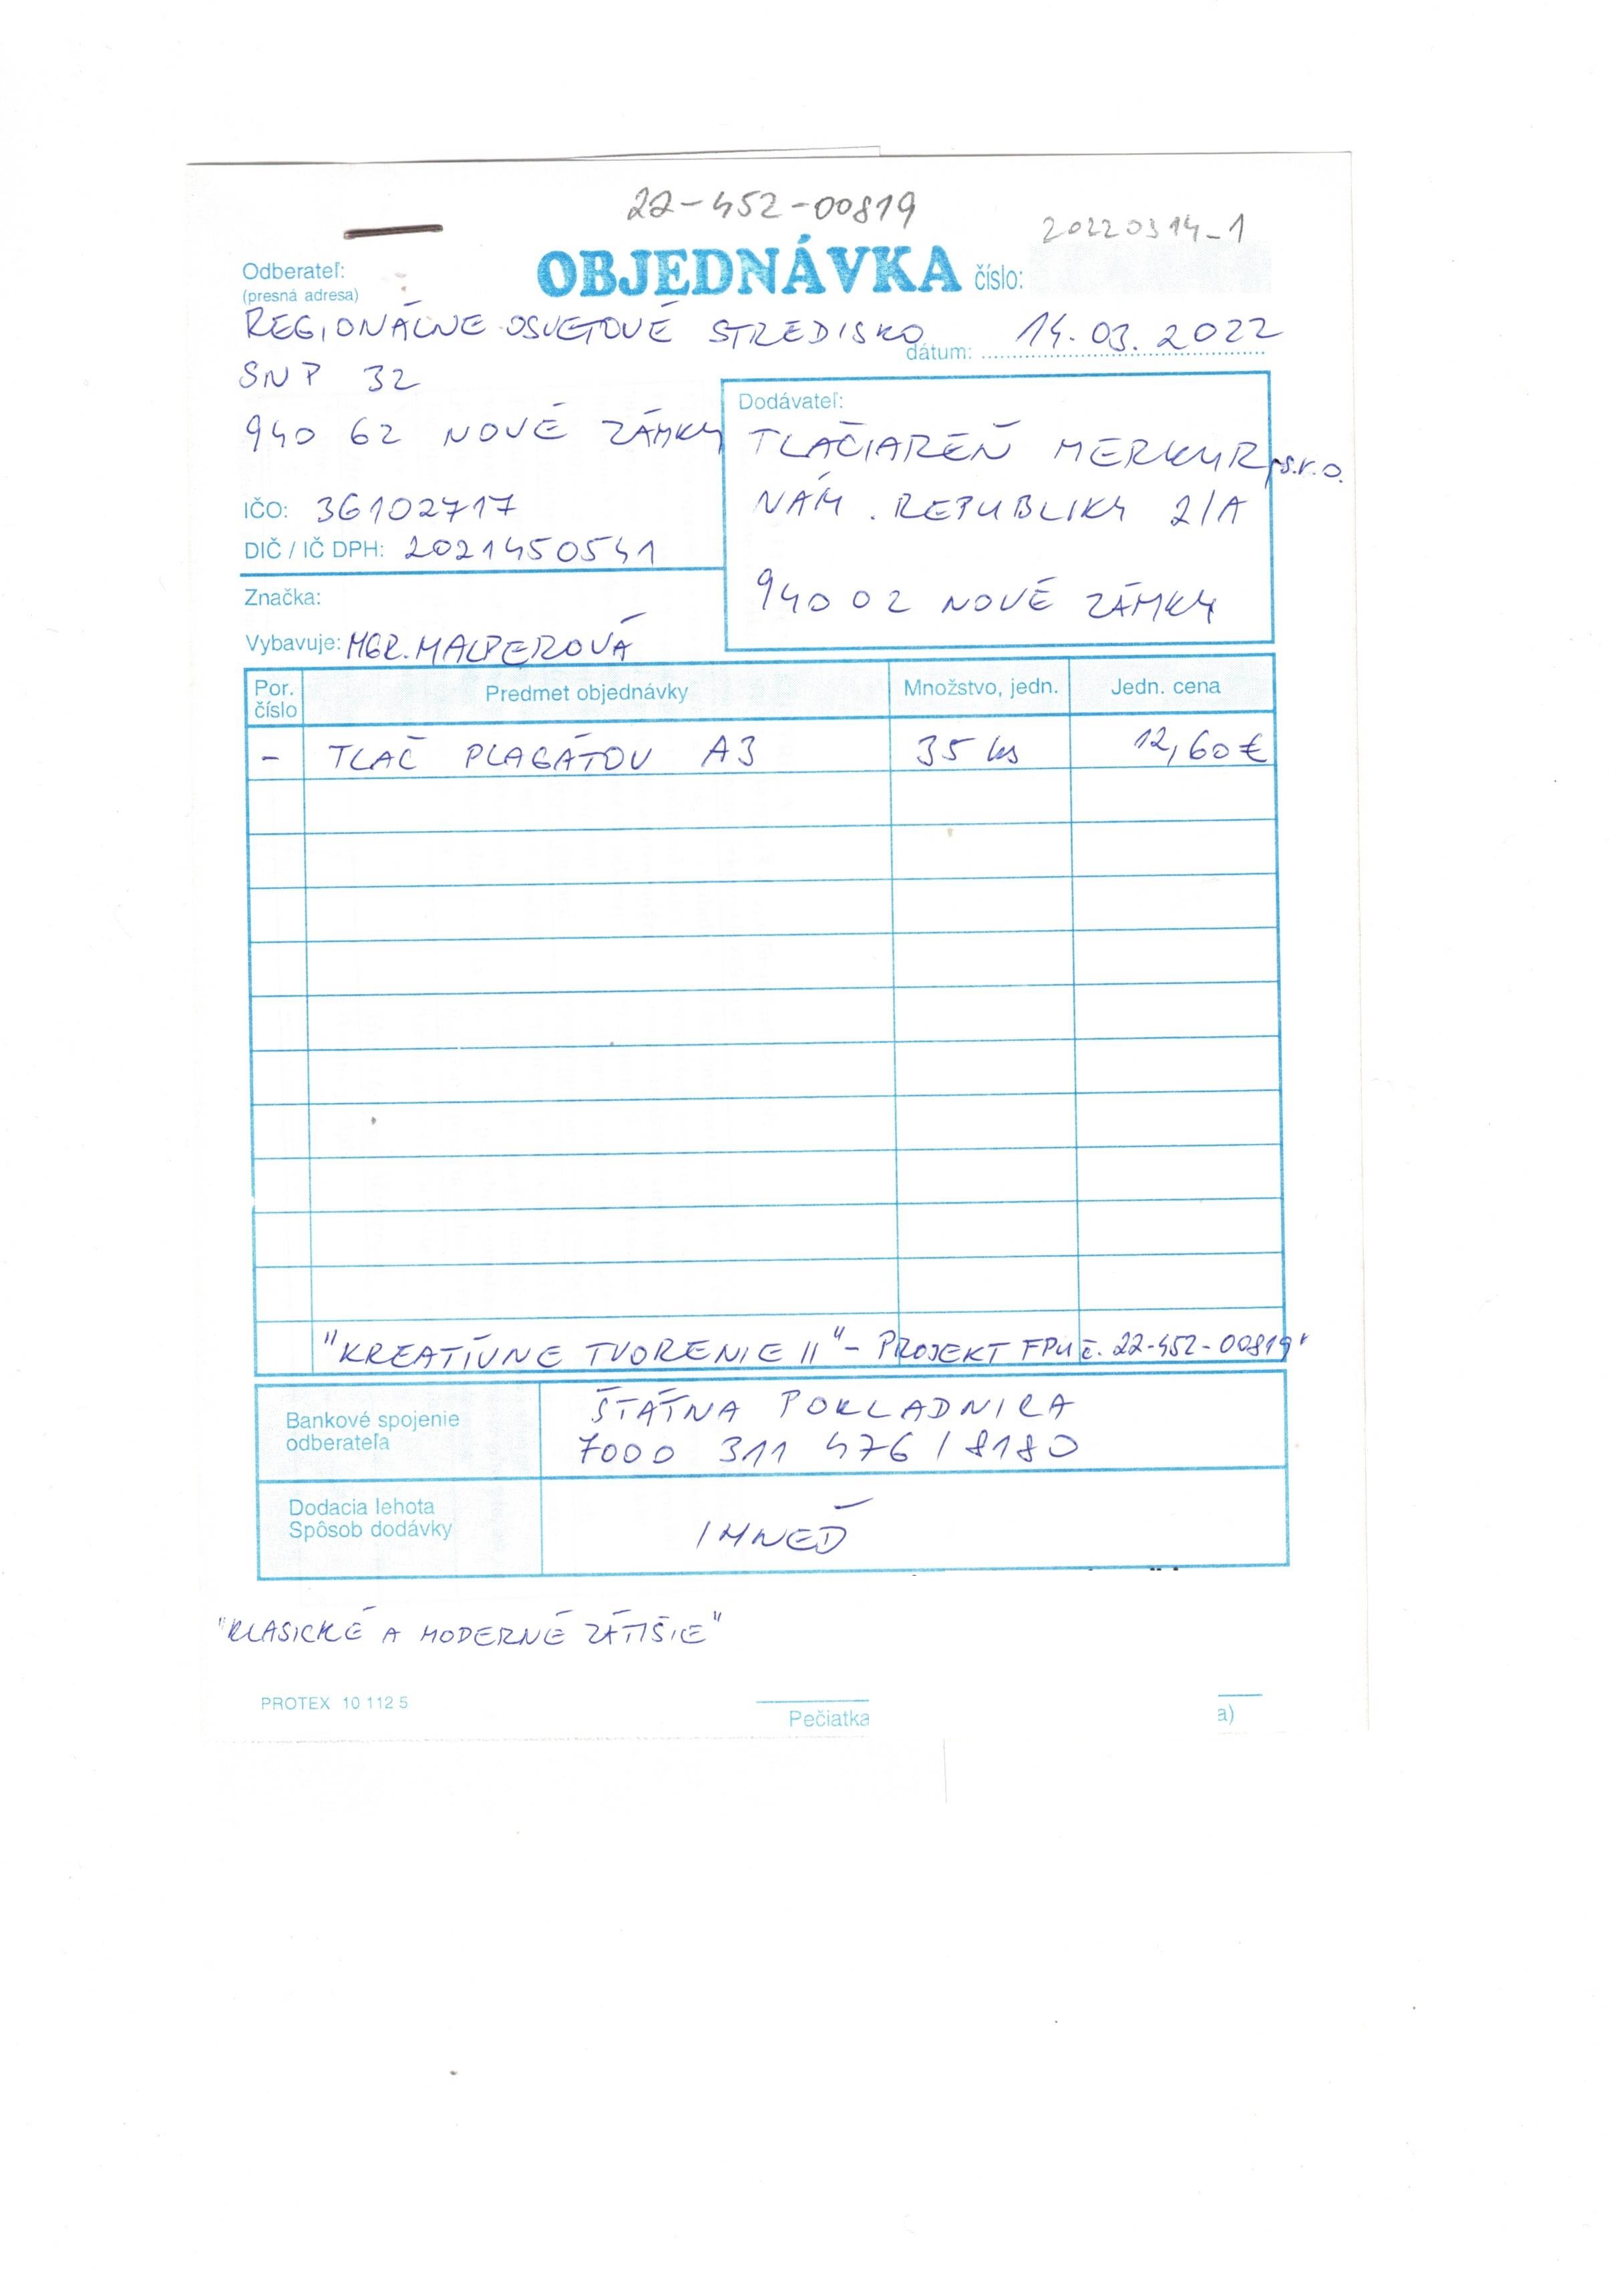 22-452-00819
20220314-1
Odberateľ:
(presná adresa)
OBJEDNÁVKA číslo:
REGIONÁLNE OSVETOVÉ STREDISKO
dátum: 14.03.2022
SNP 32
940 62 NOVÉ ZÁMKY
IČO: 36102717
DIČ / IČ DPH: 2021450541
Značka:
Vybavuje: MGR. MALPEROVÁ
Dodávateľ:
TLAČIAREŇ MERKUR, s.r.o.
NÁM. REPUBLIKY 2/A
940 02 NOVÉ ZÁMKY
Por. číslo Predmet objednávky Množstvo, jedn. Jedn. cena
- TLAČ PLAGÁTOV A3 35 ks 12,60 €
"KREATÍVNE TVORENIE II" - PROJEKT FPU č. 22-452-00819
Bankové spojenie
odberateľa
ŠTÁTNA POKLADNICA
7000 311 476 / 8180
Dodacia lehota
Spôsob dodávky
IHNEĎ
"KLASICKÉ A MODERNÉ ZÁTIŠIE"
PROTEX 10 112 5
Pečiatka
a)